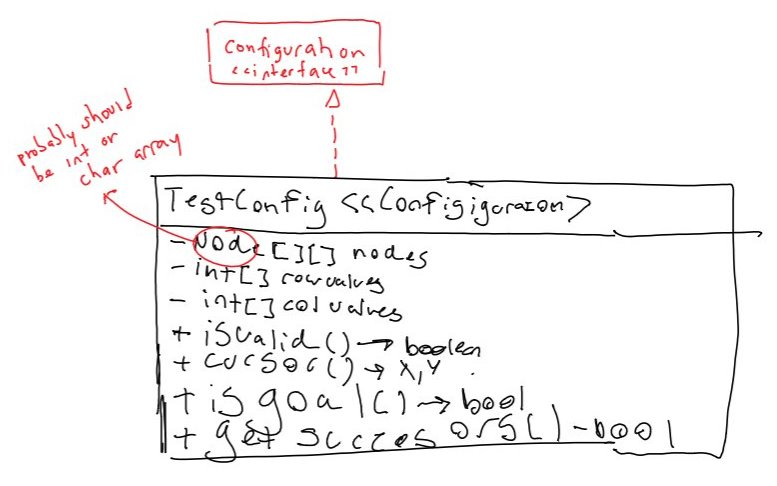 Configuration
<<interface>>
probably should
be int or
char array
TestConfig <<Configiguraion>
- Node[][] nodes
- int[] rowvalues
- int[] colvalues
+ isValid() → boolean
+ cursor() → X,Y
+ is goal() → bool
+ get succesors() - bool